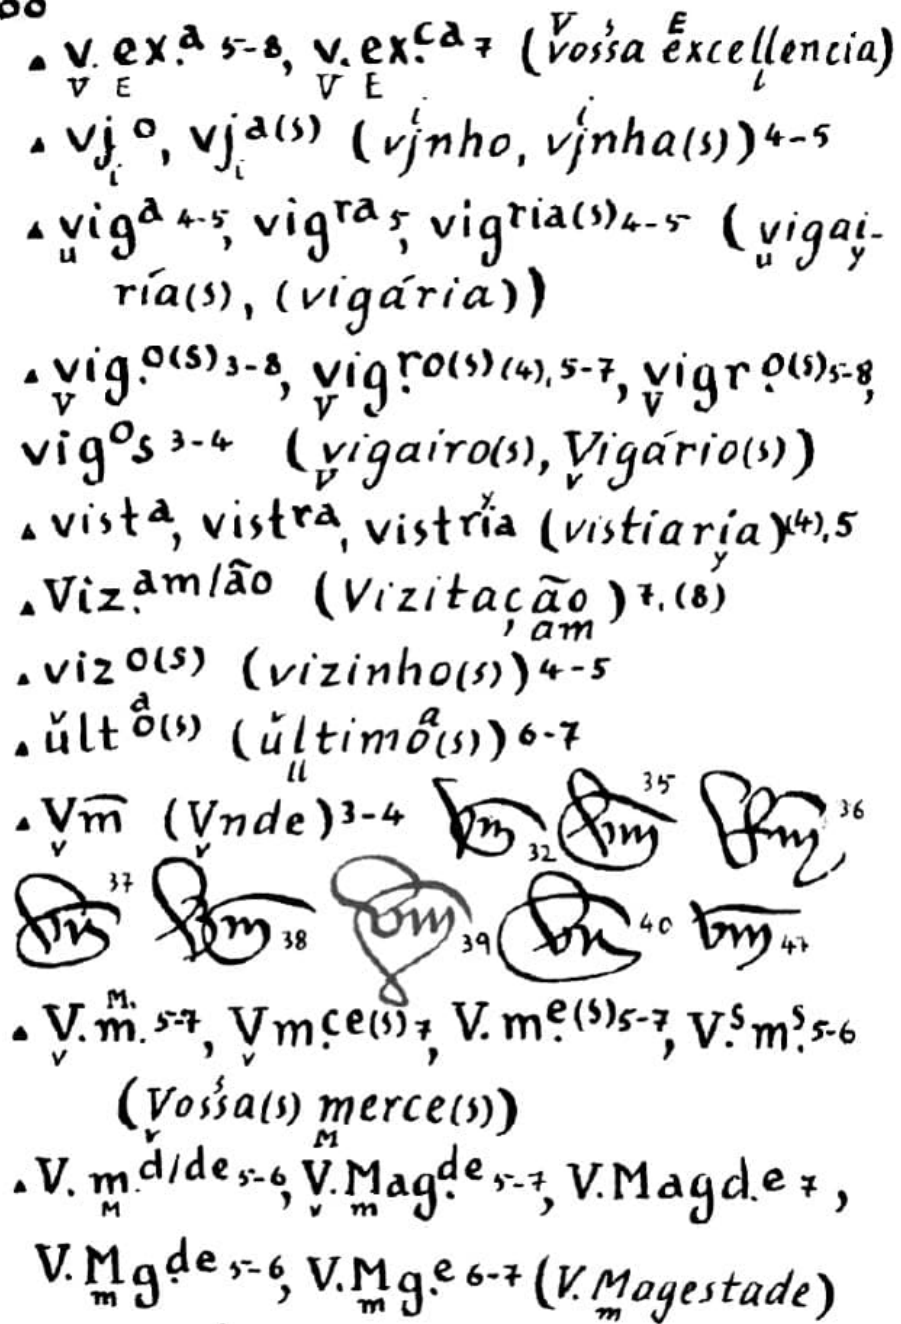 ▲ v. ex.a 5-8, v. ex.ca 7 (Vossa excellencia)
V E V E
▲ vj o, vj a(s) (vjnho, vjnha(s)) 4-5
▲ viga 4-5, vigra 5, vigria(s) 4-5 (vigai-
ría(s), (vigária))
▲ vig.o(s) 3-8, vig.ro(s) (4), 5-7, vigr.o(s) 5-8,
vigos 3-4 (vigairo(s), Vigário(s))
▲ vista, vistra, vistria (vistiaria) (4), 5
▲ Viz.am/ão (Vizitação) 7, (8)
am
▲ viz o(s) (vizinho(s)) 4-5
▲ ŭlt o(s) (ŭltimo(s)) 6-7
▲ Vm̅ (Vnde) 3-4 32 35 36
37 38 39 40 47
▲ V. m. 5-7, Vm.ce(s) 7, V. m.e(s) 5-7, V.s m.s 5-6
(Vossa(s) merce(s))
▲ V. m.d/de 5-6, V. Mag.de 5-7, V. Magd.e 7,
V. Mg.de 5-6, V. Mg.e 6-7 (V. Magestade)